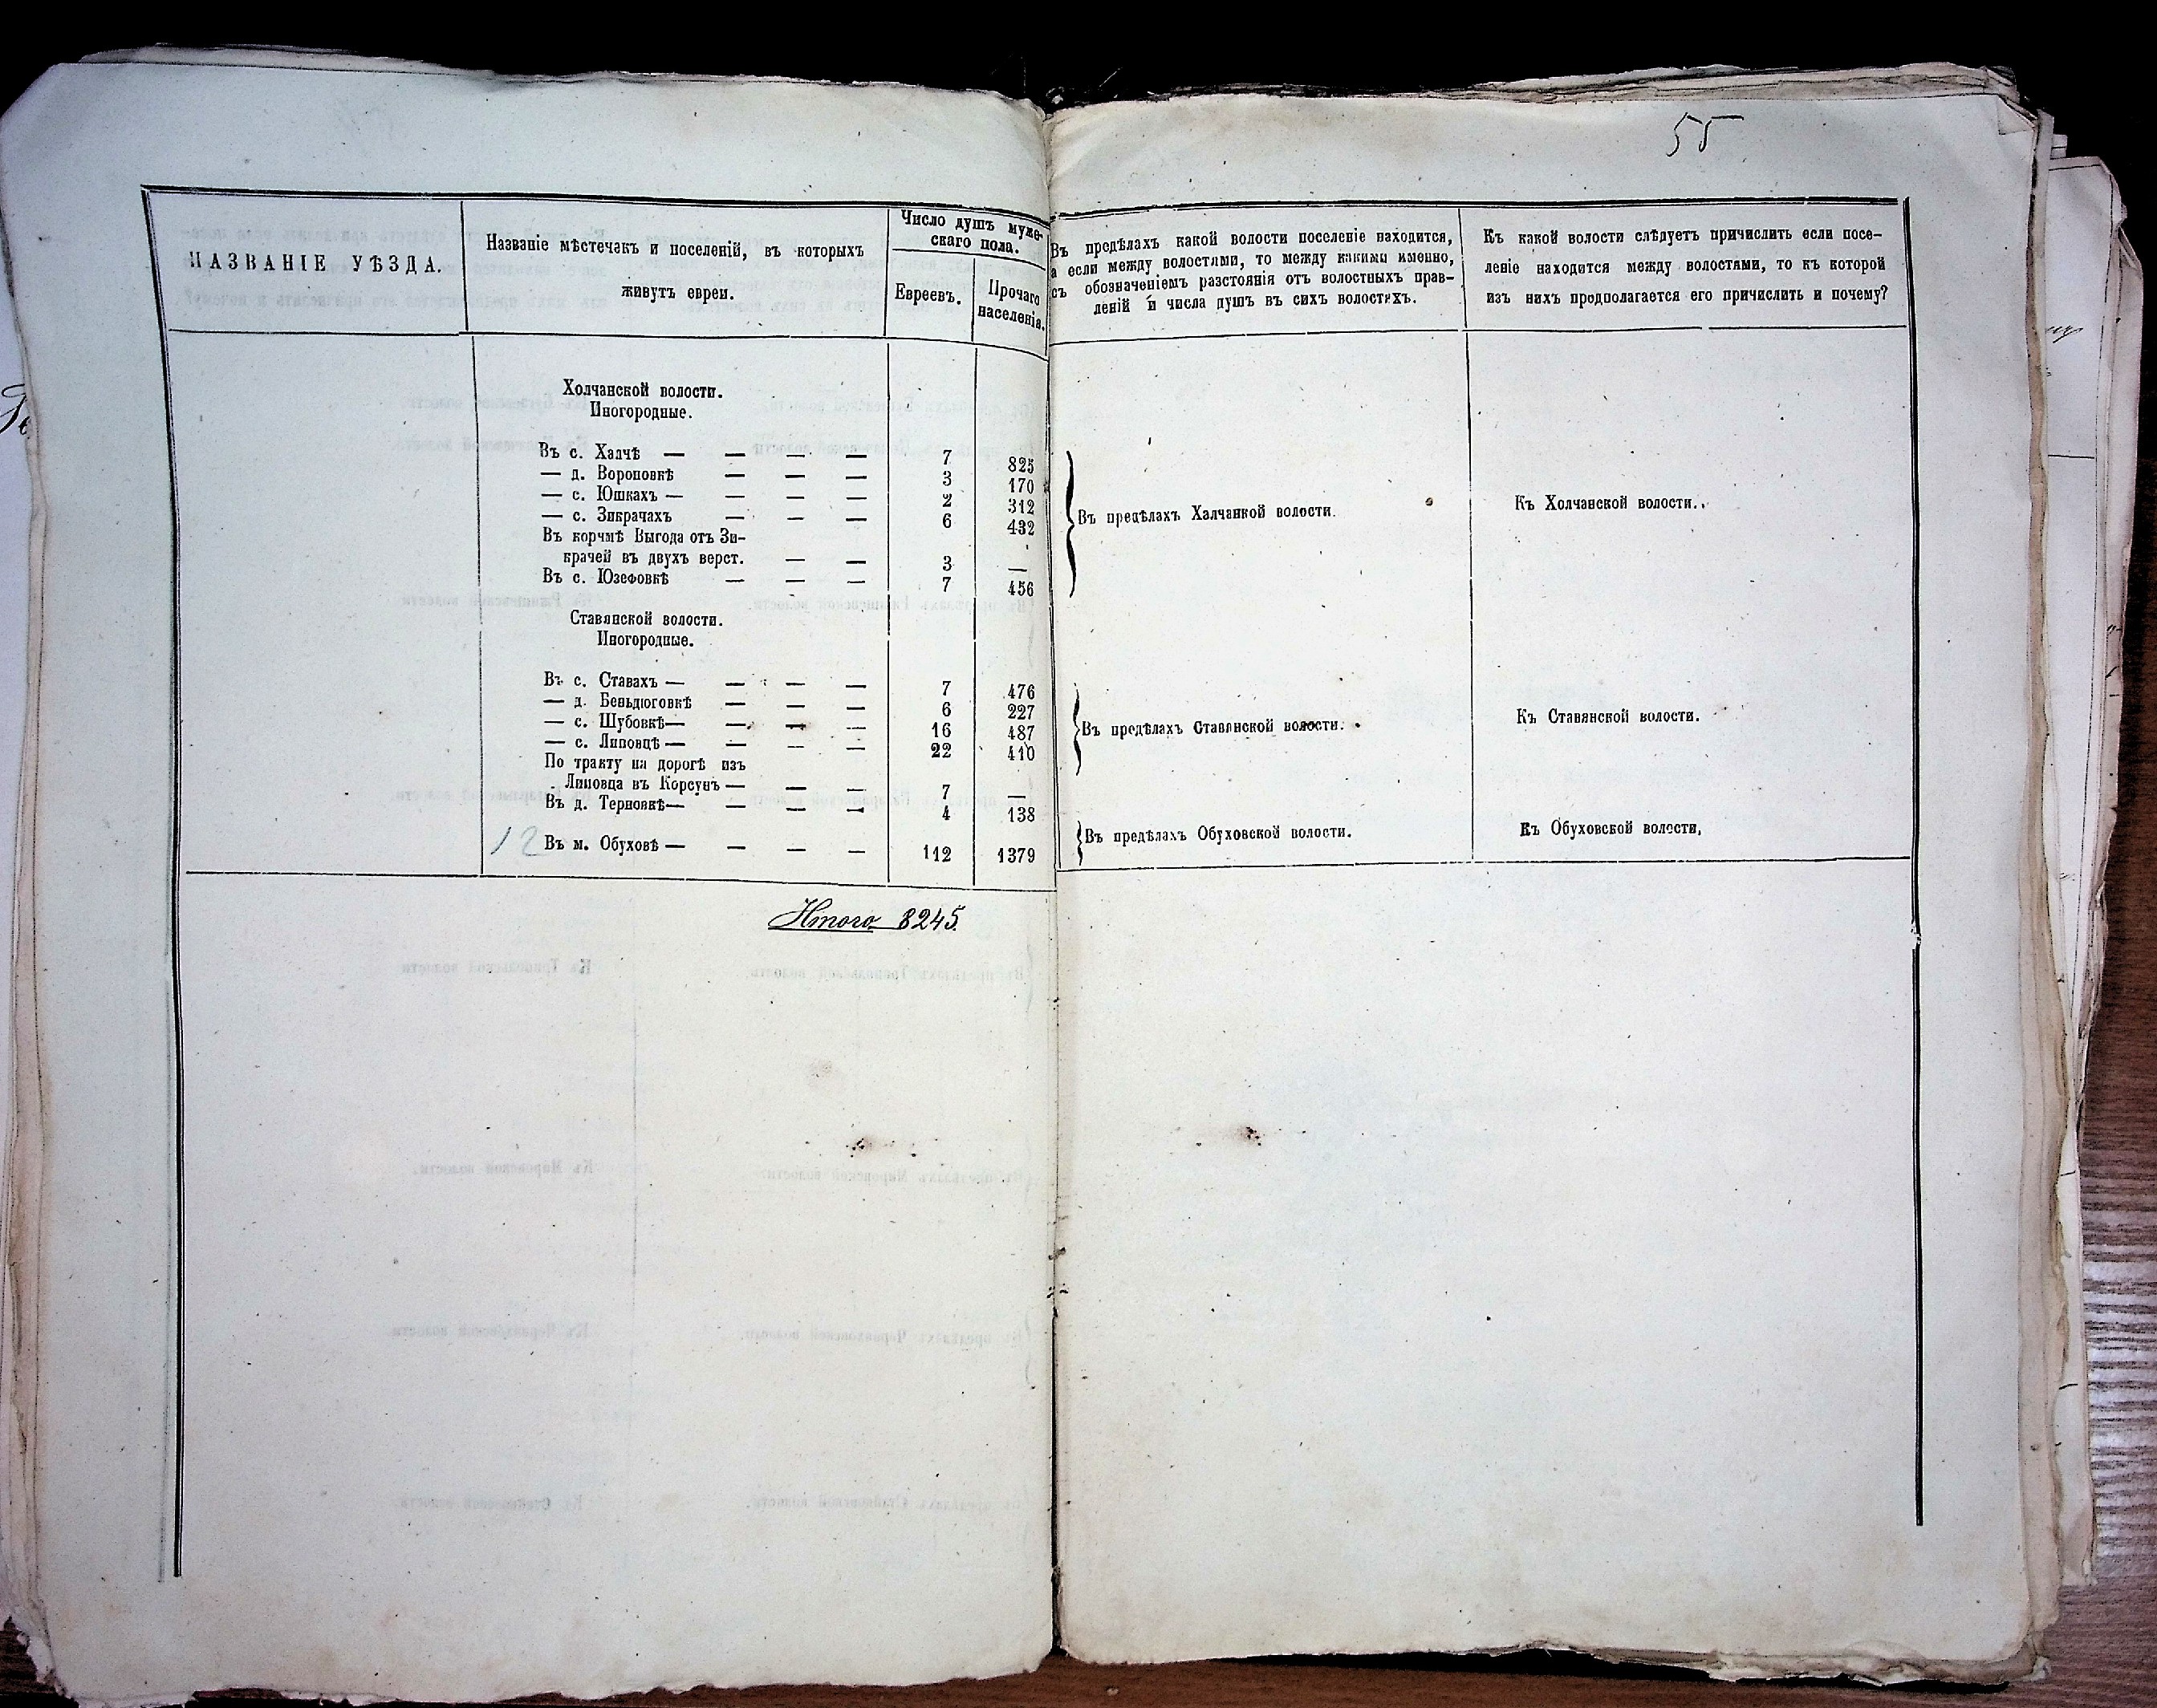 55
НАЗВАНІЕ УѢЗДА.
Названіе мѣстечакъ и поселеній, въ которыхъ
живутъ евреи.
Число душъ муже-
скаго пола.
Евреевъ.
Прочаго
населенія.
Въ предѣлахъ какой волости поселеніе находится,
а если между волостями, то между какими именно,
съ обозначеніемъ разстоянія отъ волостныхъ прав-
леній и числа душъ въ сихъ волостяхъ.
Къ какой волости слѣдуетъ причислить если посе-
леніе находится между волостями, то къ которой
изъ нихъ предполагается его причислить и почему?
Холчанской волости.
Иногородные.
Въ с. Халчѣ — — — — 7 825
— д. Вороновкѣ — — — 3 170
— с. Юшкахъ — — — — 2 312
— с. Зикрачахъ — — — 6 432
Въ корчмѣ Выгода отъ Зи-
крачей въ двухъ верст. — — 3 —
Въ с. Юзефовкѣ — — — 7 456
Въ предѣлахъ Халчанкой волости.
Къ Холчанской волости.
Ставянской волости.
Иногородные.
Въ с. Ставахъ — — — — 7 476
— д. Беньдюговкѣ — — — 6 227
— с. Шубовкѣ — — — — 16 487
— с. Липовцѣ — — — — 22 410
По тракту на дорогѣ изъ
Липовца въ Корсунъ — — — 7 —
Въ д. Терновкѣ — — — — 4 138
Въ предѣлахъ Ставянской волости.
Къ Ставянской волости.
12 Въ м. Обуховѣ — — — — 112 1379
Въ предѣлахъ Обуховской волости.
Къ Обуховской волости,
Итого 8245.